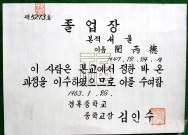 제5273호
졸업장
본적 서울
이름 閔丙德
1947. 19. 24. 생
이 사람은 본교에서 정한 바 온
과정을 이수하였으므로 이를 수여함
1963. 1. 26.
경복중학교
중학교장 김인수